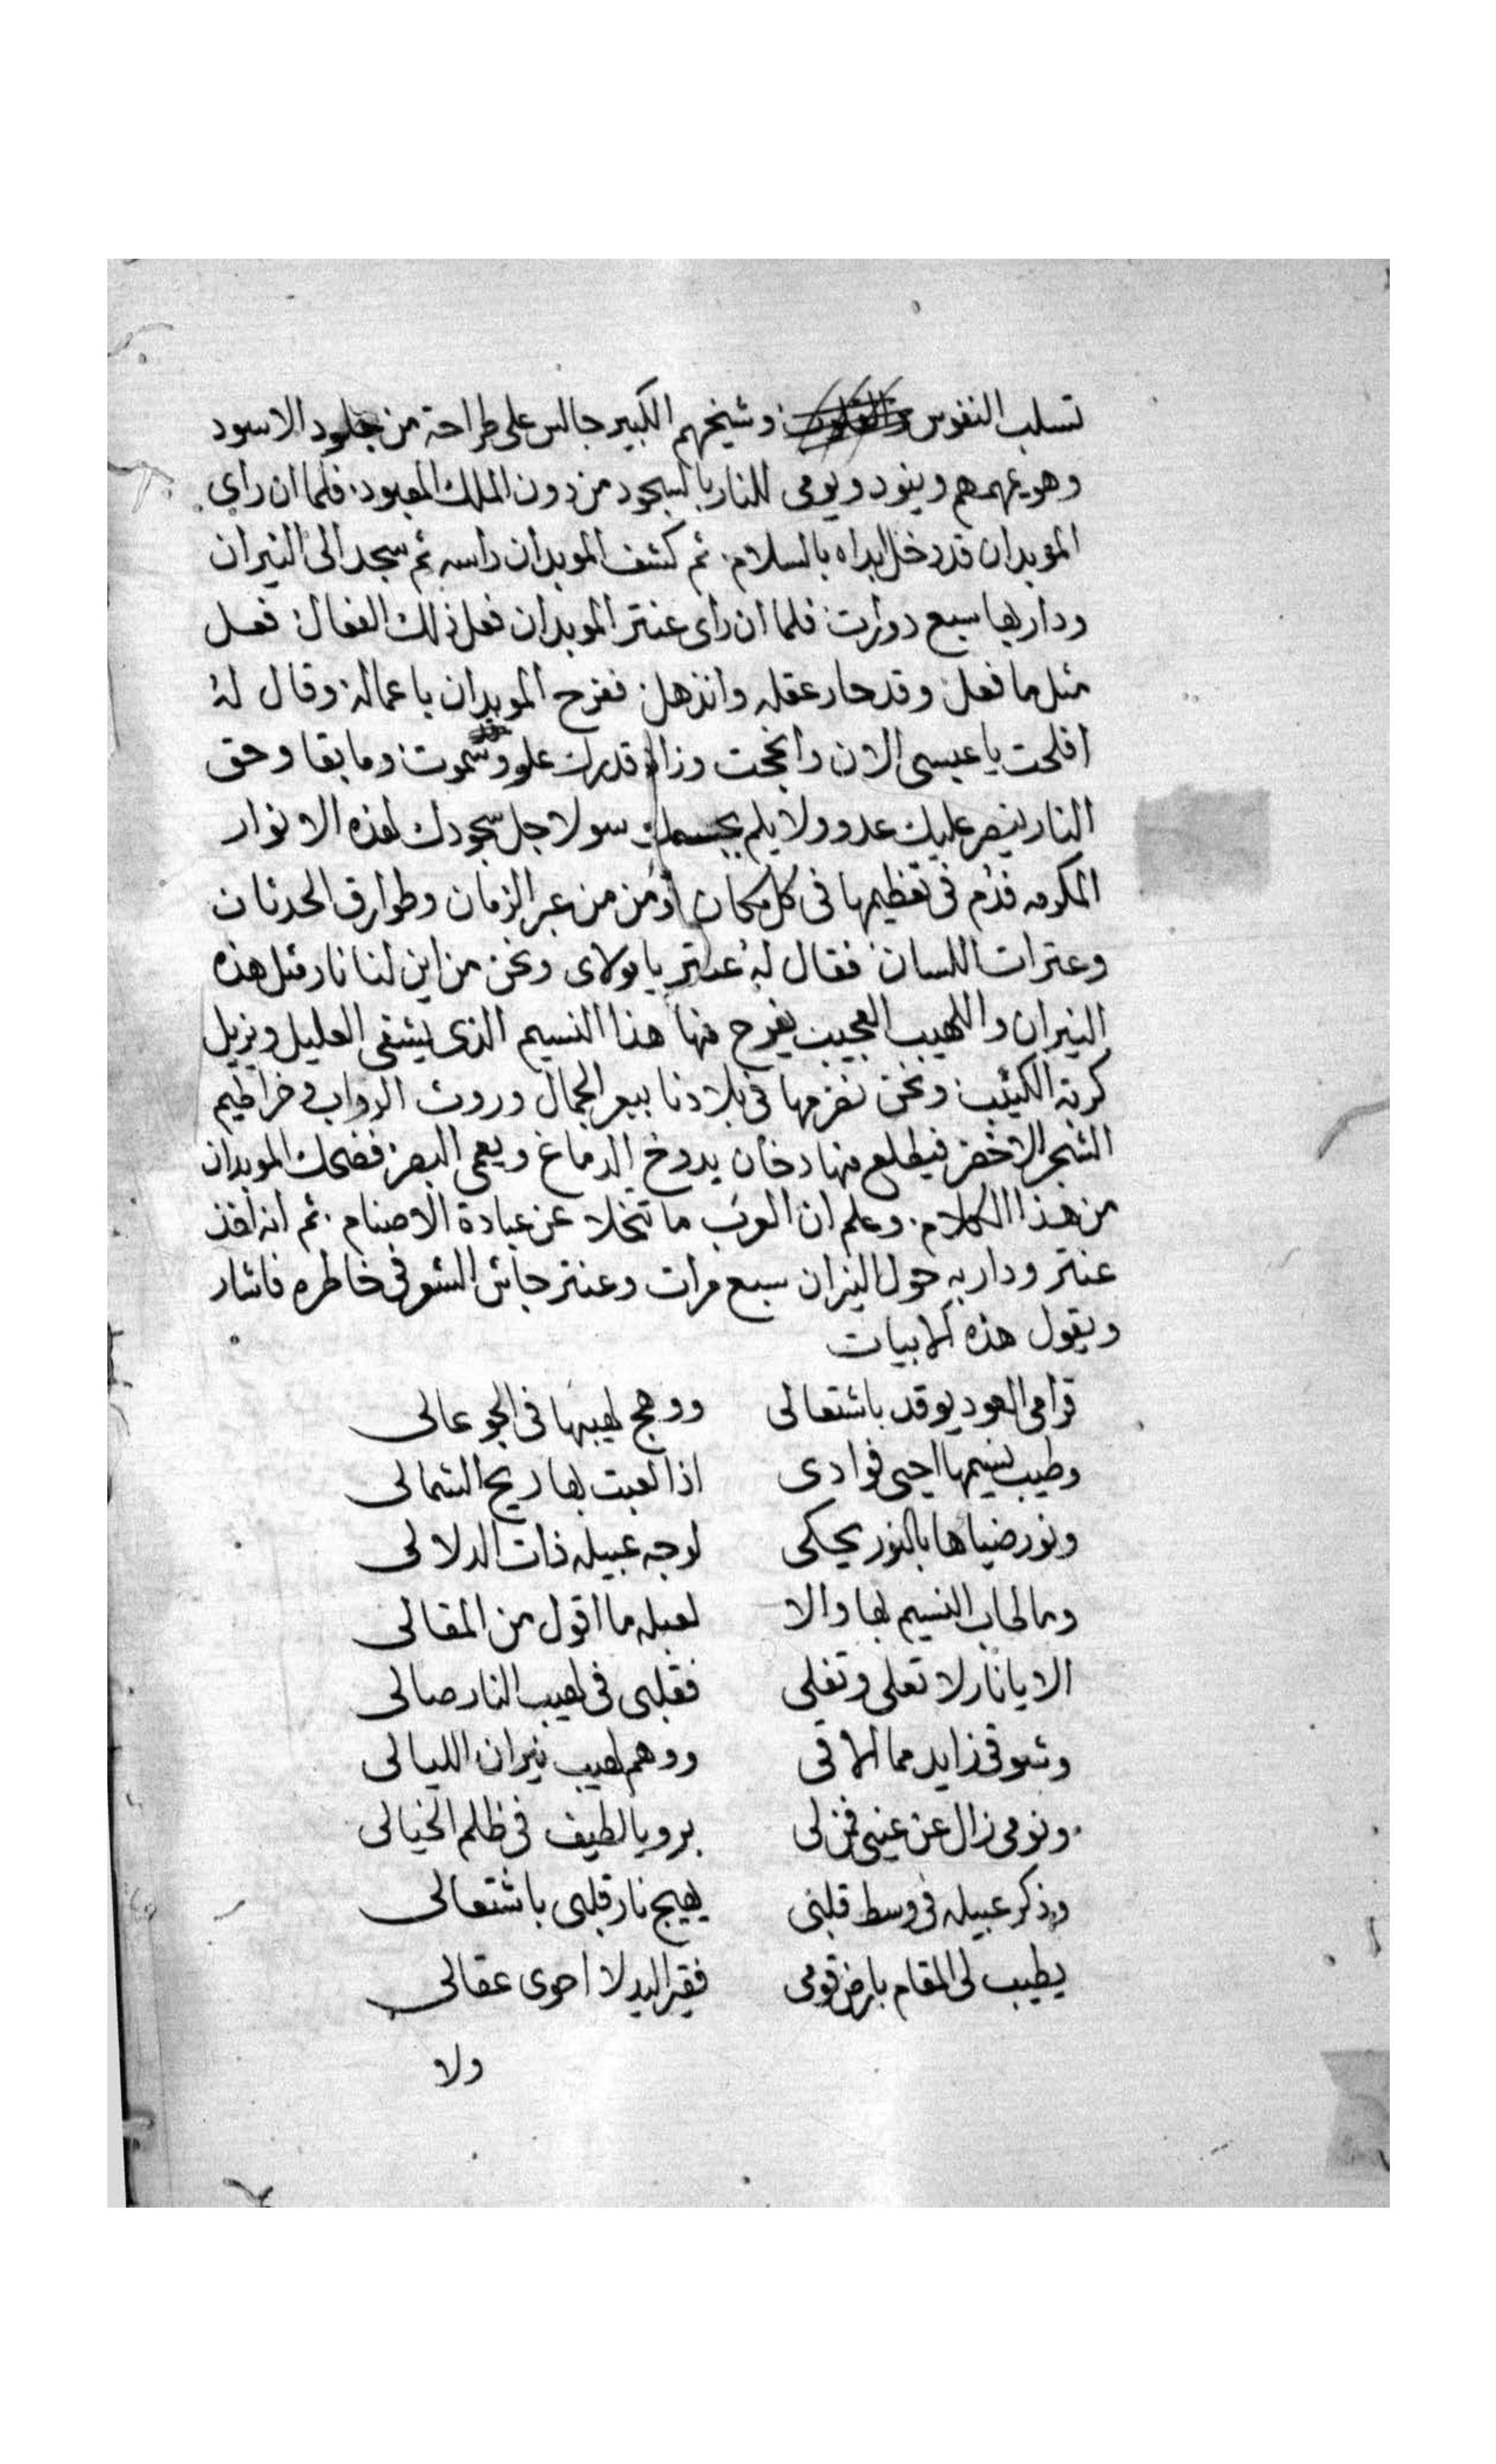 تسلب النفوس وشيخهم الكبير جالس على طراحة من جلود الاسود
وهو يهمهم وينود ويومى للنار بالسجود من دون الملك المعبود. فلما ان راى
الموبدان قد دخل ابداه بالسلام. ثم كشف الموبدان راسه ثم سجد الى النيران
ودار بها سبع دورات فلما ان راى عنتر الموبدان فعل ذلك الفعال فعل
مثل ما فعل وقد حار عقله وانذهل ففرح الموبدان باعماله وقال له
افلحت يا عبسى الان وانججت وزاد قدرك علو وسموت وما بقا وحق
النار ينصر عليك عدو ولا يلم بجسمك سو لاجل سجودك لهذه الانوار
المكرمه فدُم فى تعظيمها فى كل مكان تؤمن من غبر الزمان وطوارق الحدثان
وعترات اللسان فقال له عنتر يا مولاى ونحن من اين لنا نار مثل هذه
النيران واللهيب العجيب يفرح منها هذا النسيم الذى يشفى العليل ويزيل
كربة الكئيب ونحن نضرمها فى بلادنا ببعر الجمال وروث الدواب وخراطيم
الشجر الاخضر فيطلع منها دخان يدوخ الدماغ ويعمى البصر فضحك الموبدان
من هذا الكلام. وعلم ان العرب ما تتخلا عن عبادة الاصنام. ثم انه اخذ
عنتر ودار به حول النيران سبع مرات وعنتر جاش الشعر فى خاطره فاشار
ويقول هذه الابيات
قرامى العود يوقد باشتعالى ووهج لهيبها فى الجو عالى
وطيب نسيمها احيى فوادى اذا لعبت بها ريح الشمالى
ونور ضياها بالنور يحكى لوجه عبيله ذات الدلالى
وما لحاب النسيم بها والا لعبله ما اقول من المقالى
الا يا نار لا تعلى وتغلى فقلبى فى لهيب النار صالى
وشوقى زايد مما الاقى ووهم لهيب نيران الليالى
ونومى زال عن عينى فمن لى برويا لطيف فى ظلم الخيالى
وذكر عبيله فى وسط قلبى يهيج نار قلبى باشتعالى
يطيب لى المقام بارض قومى فقير اليد لا احوى عقالى
ولا